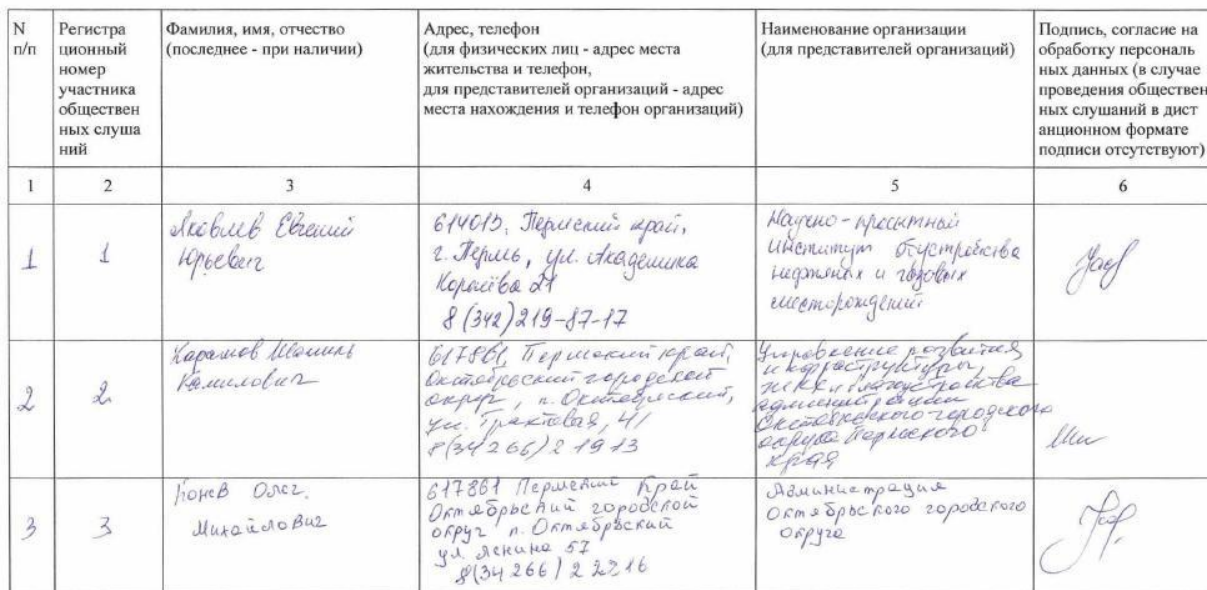 N
п/п
Регистра
ционный
номер
участника
обществен
ных слуша
ний
Фамилия, имя, отчество
(последнее - при наличии)
Адрес, телефон
(для физических лиц - адрес места
жительства и телефон,
для представителей организаций - адрес
места нахождения и телефон организаций)
Наименование организации
(для представителей организаций)
Подпись, согласие на
обработку персональ
ных данных (в случае
проведения обществен
ных слушаний в дист
анционном формате
подписи отсутствуют)
1
2
3
4
5
6
1
1
Яковлев Евгений
Юрьевич
614015, Пермский край,
г. Пермь, ул. Академика
Королёва 21
8 (342) 219-87-17
Научно-проектный
институт обустройства
нефтяных и газовых
месторождений
2
2
Карамов Шамиль
Камилович
617861, Пермский край,
Октябрьский городской
округ, п. Октябрьский,
ул. Трактовая, 41
8(34266) 2 19 13
Управление развития
инфраструктуры,
ЖКХ и благоустройства
администрации
Октябрьского городского
округа Пермского
края
3
3
Конев Олег
Михайлович
617861 Пермский Край
Октябрьский городской
округ п. Октябрьский
ул. Ленина 57
8(34 266) 2 22 16
Администрация
Октябрьского городского
округа